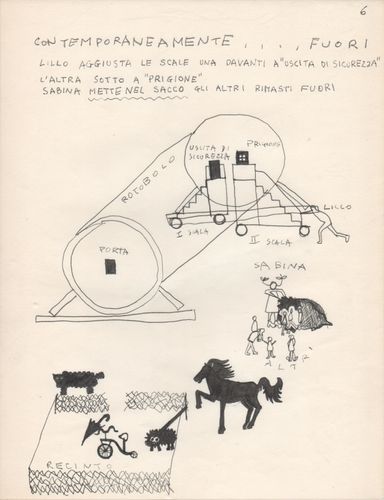 6
CONTEMPORANEAMENTE , . . , FUORI
LILLO AGGIUSTA LE SCALE UNA DAVANTI A "USCITA DI SICUREZZA"
L'ALTRA SOTTO A "PRIGIONE"
SABINA METTE NEL SACCO GLI ALTRI RIMASTI FUORI
USCITA DI
SICUREZZA
PRIGIONE
ROTOBOLO
LILLO
I
SCALA
II SCALA
PORTA
SABINA
ALTRI
RECINTO